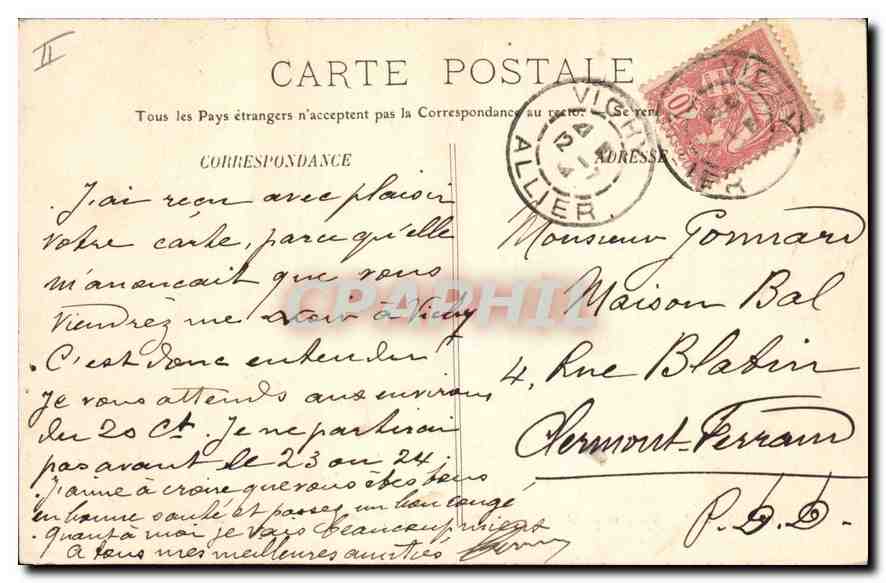 II
CARTE POSTALE
Tous les Pays étrangers n'acceptent pas la Correspondance au recto. Se ren
CORRESPONDANCE
ADRESSE
VICHY
ALLIER
10
CPAPHIL
J'ai reçu avec plaisir
votre carte, parce qu'elle
m'anoncait que vous
viendrez me voir à Vichy
C'est donc entendu
Je vous attends aux environs
du 20 Ct. Je ne partirai
pas avant le 23 ou 24
J'aime à croire que vous êtes tous
en bonne santé et passez un bon congé
quant à moi je vais beaucoup mieux
à tous mes meilleures amitiés
Monsieur Gonnard
Maison Bal
4, Rue Blatin
Clermont-Ferrand
P.D.D.